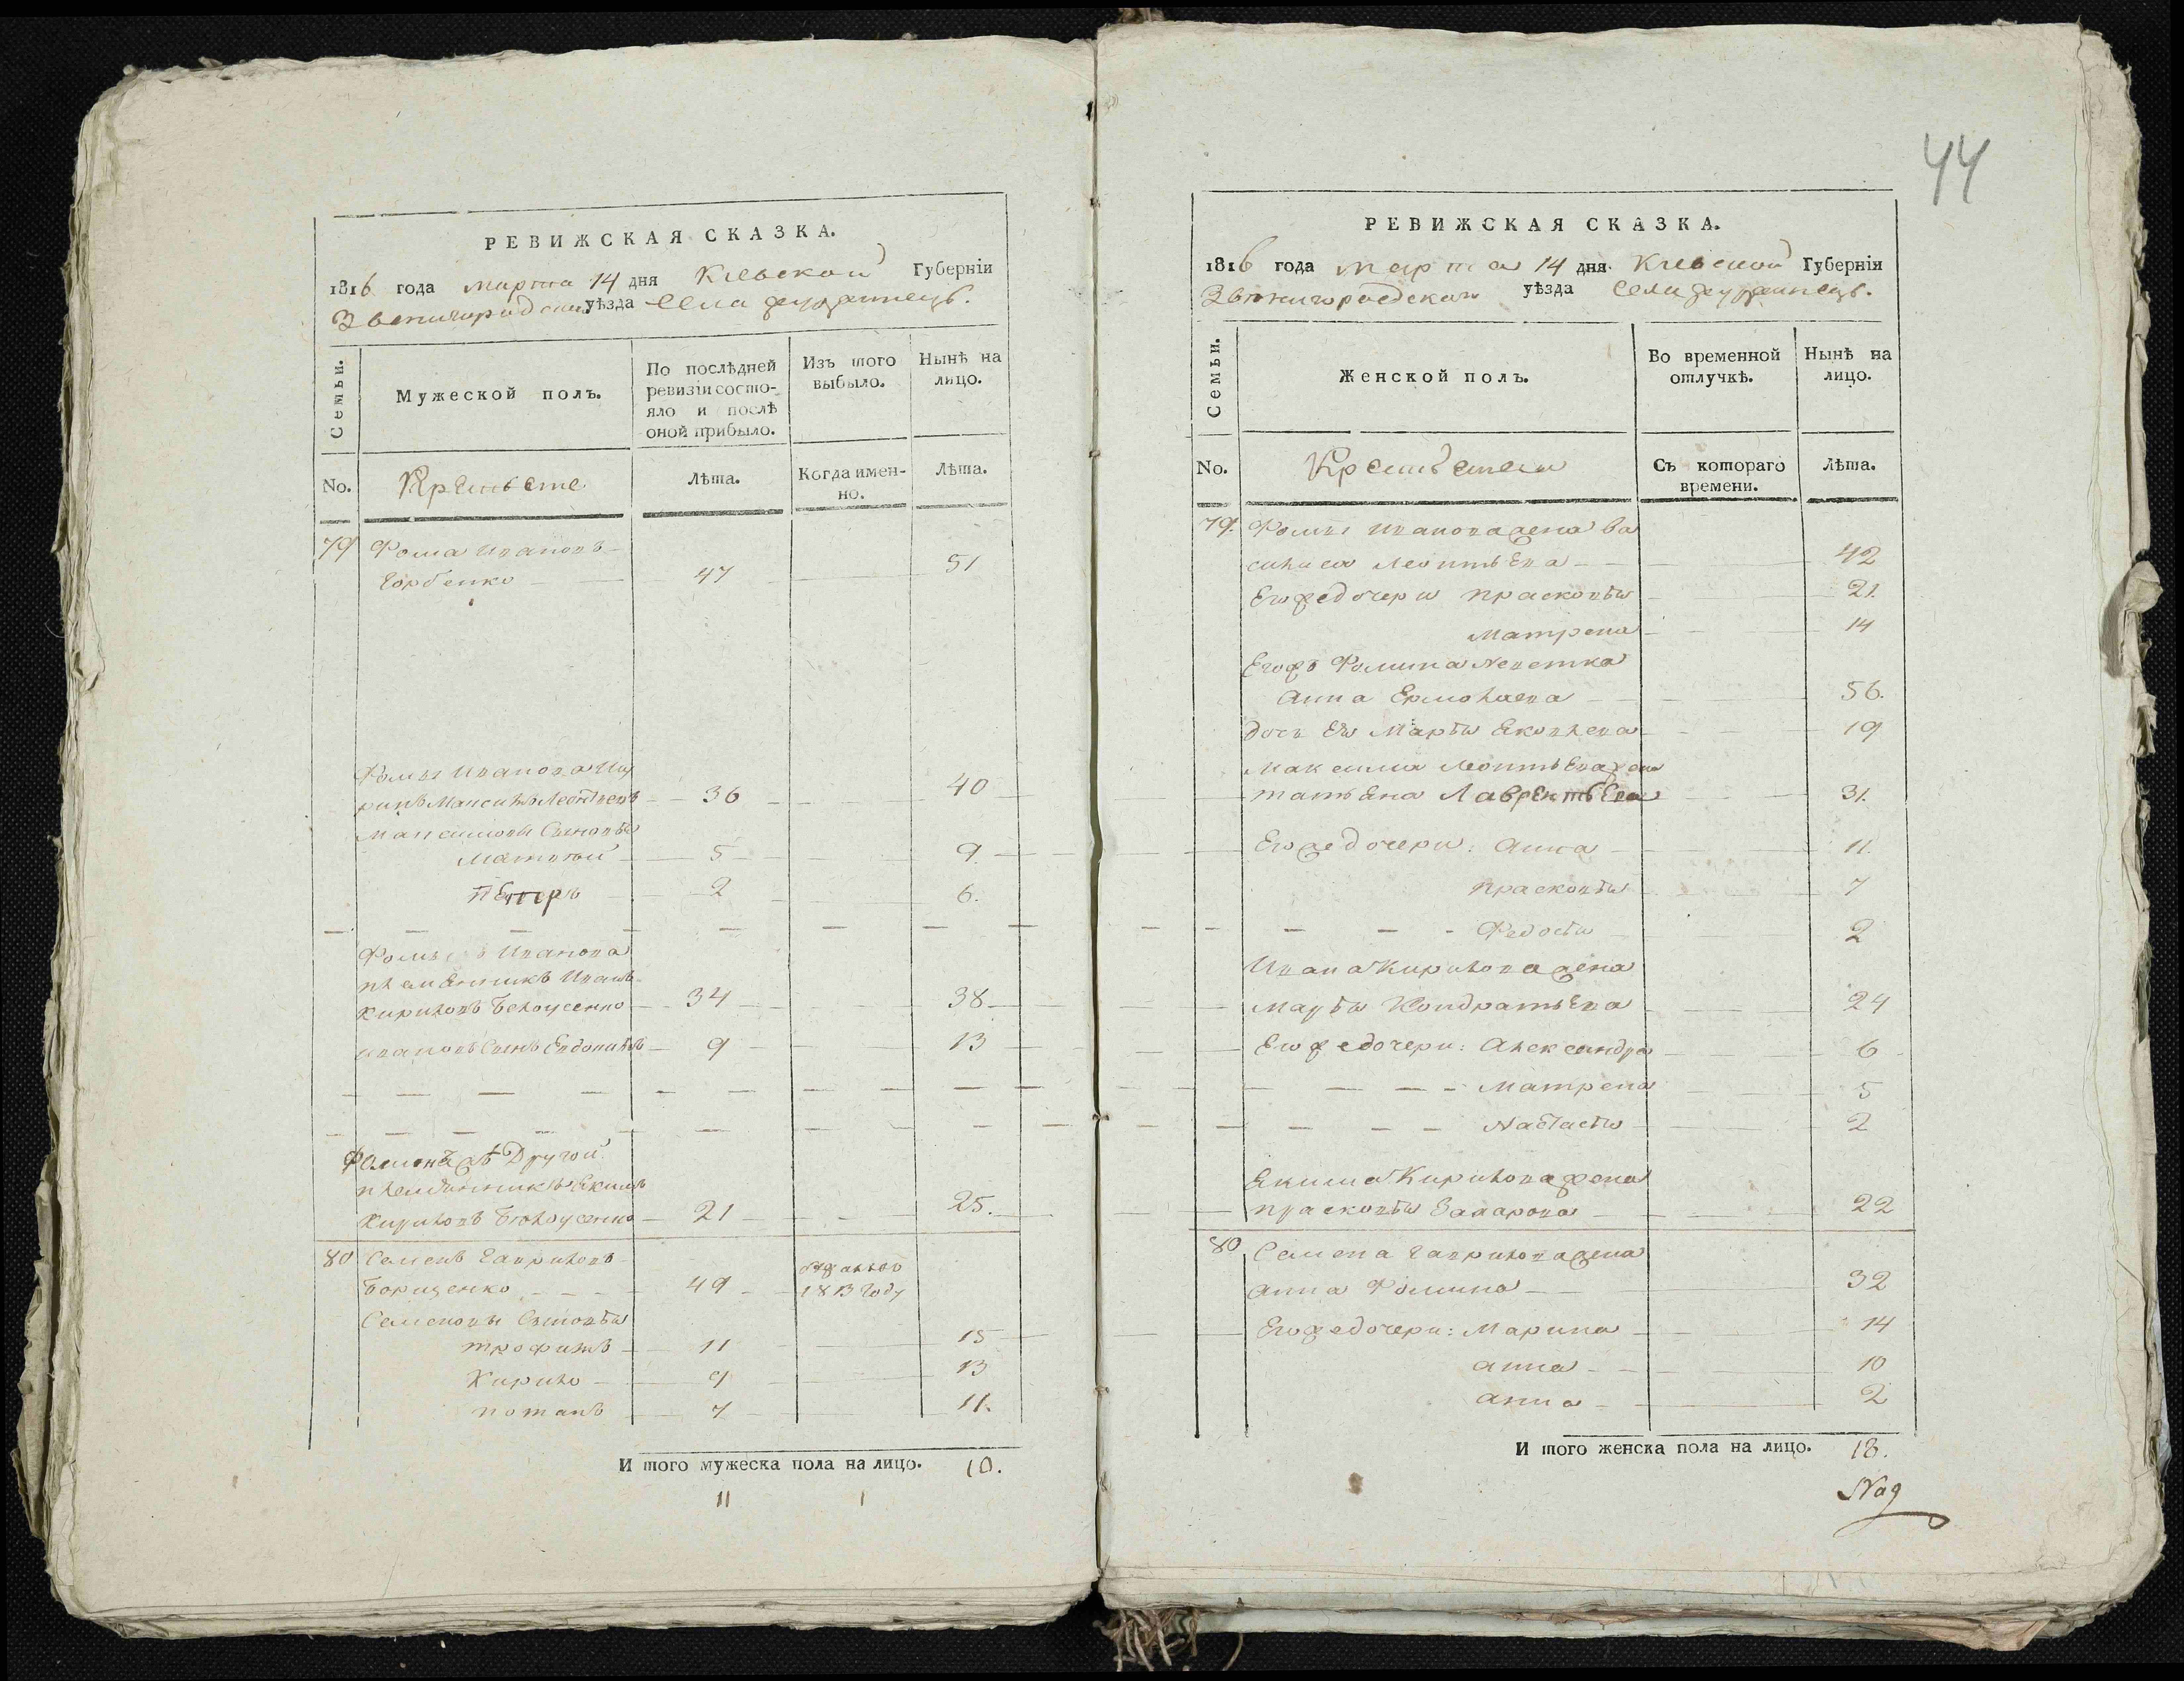 РЕВИЖСКАЯ СКАЗКА.
1816 года марта 14 дня Кіевской Губерніи
Звенигородскаго уѣзда села
Семьи.
Мужеской полъ.
По послѣдней ревизіи состояло и послѣ оной прибыло.
Изъ того выбыло.
Нынѣ на лицо.
No.
Крестьяне
Лѣта.
Когда именно.
Лѣта.
79 Фома Ивановъ
Горбенко 47 51
Фомы Иванова Шу
ринъ Максимъ Леонтьевъ 36 40
Максимовы Сыновья
Матвѣй 5 9.
Петръ 2 6.
Фомы Иванова
племянникъ Иванъ
Кириловъ Белоусенко 34 38
Ивановъ Сынъ Евдокимъ 9 13
Другой
племянникъ Екимъ
Кириловъ Белоусенко 21 25.
80 Семенъ Гавриловъ
Борщенко 49 1813 Году
Семеновы Сыновья
трофимъ 11 15
Кирило 9 13
потапъ 7 11.
И того мужеска пола на лицо. 10.
11 1
44
РЕВИЖСКАЯ СКАЗКА.
1816 года марта 14 дня Кіевской Губернія
Звенигородскаго уѣзда села
Семьи.
Женской полъ.
Во временной отлучкѣ.
Нынѣ на лицо.
No.
Крестьянки
Съ котораго времени.
Лѣта.
79. Фомы Иванова жена Ва
силиса Леонтьева 42
Егожъ дочери Прасковья 21.
Матрена 14
Егожъ Фомина Невестка
Анна Ермолаева 56.
дочь Ея Марья Яковлева 19
Максима Леонтьева жена
татьяна Лаврентьева 31.
Егоже дочери: Анна 11.
Прасковья 7
Федосья 2
Ивана Кирилова жена
Марья Кондратьева 24
Егоже дочери: Александра 6
Матрена 5
Настасья 2
Екима Кирилова жена
прасковья Захарова 22
80 Семена Гаврилова жена
Анна Фомина 32
Егоже дочери: Марина 14
анна 10
анна 2
И того женска пола на лицо. 18.